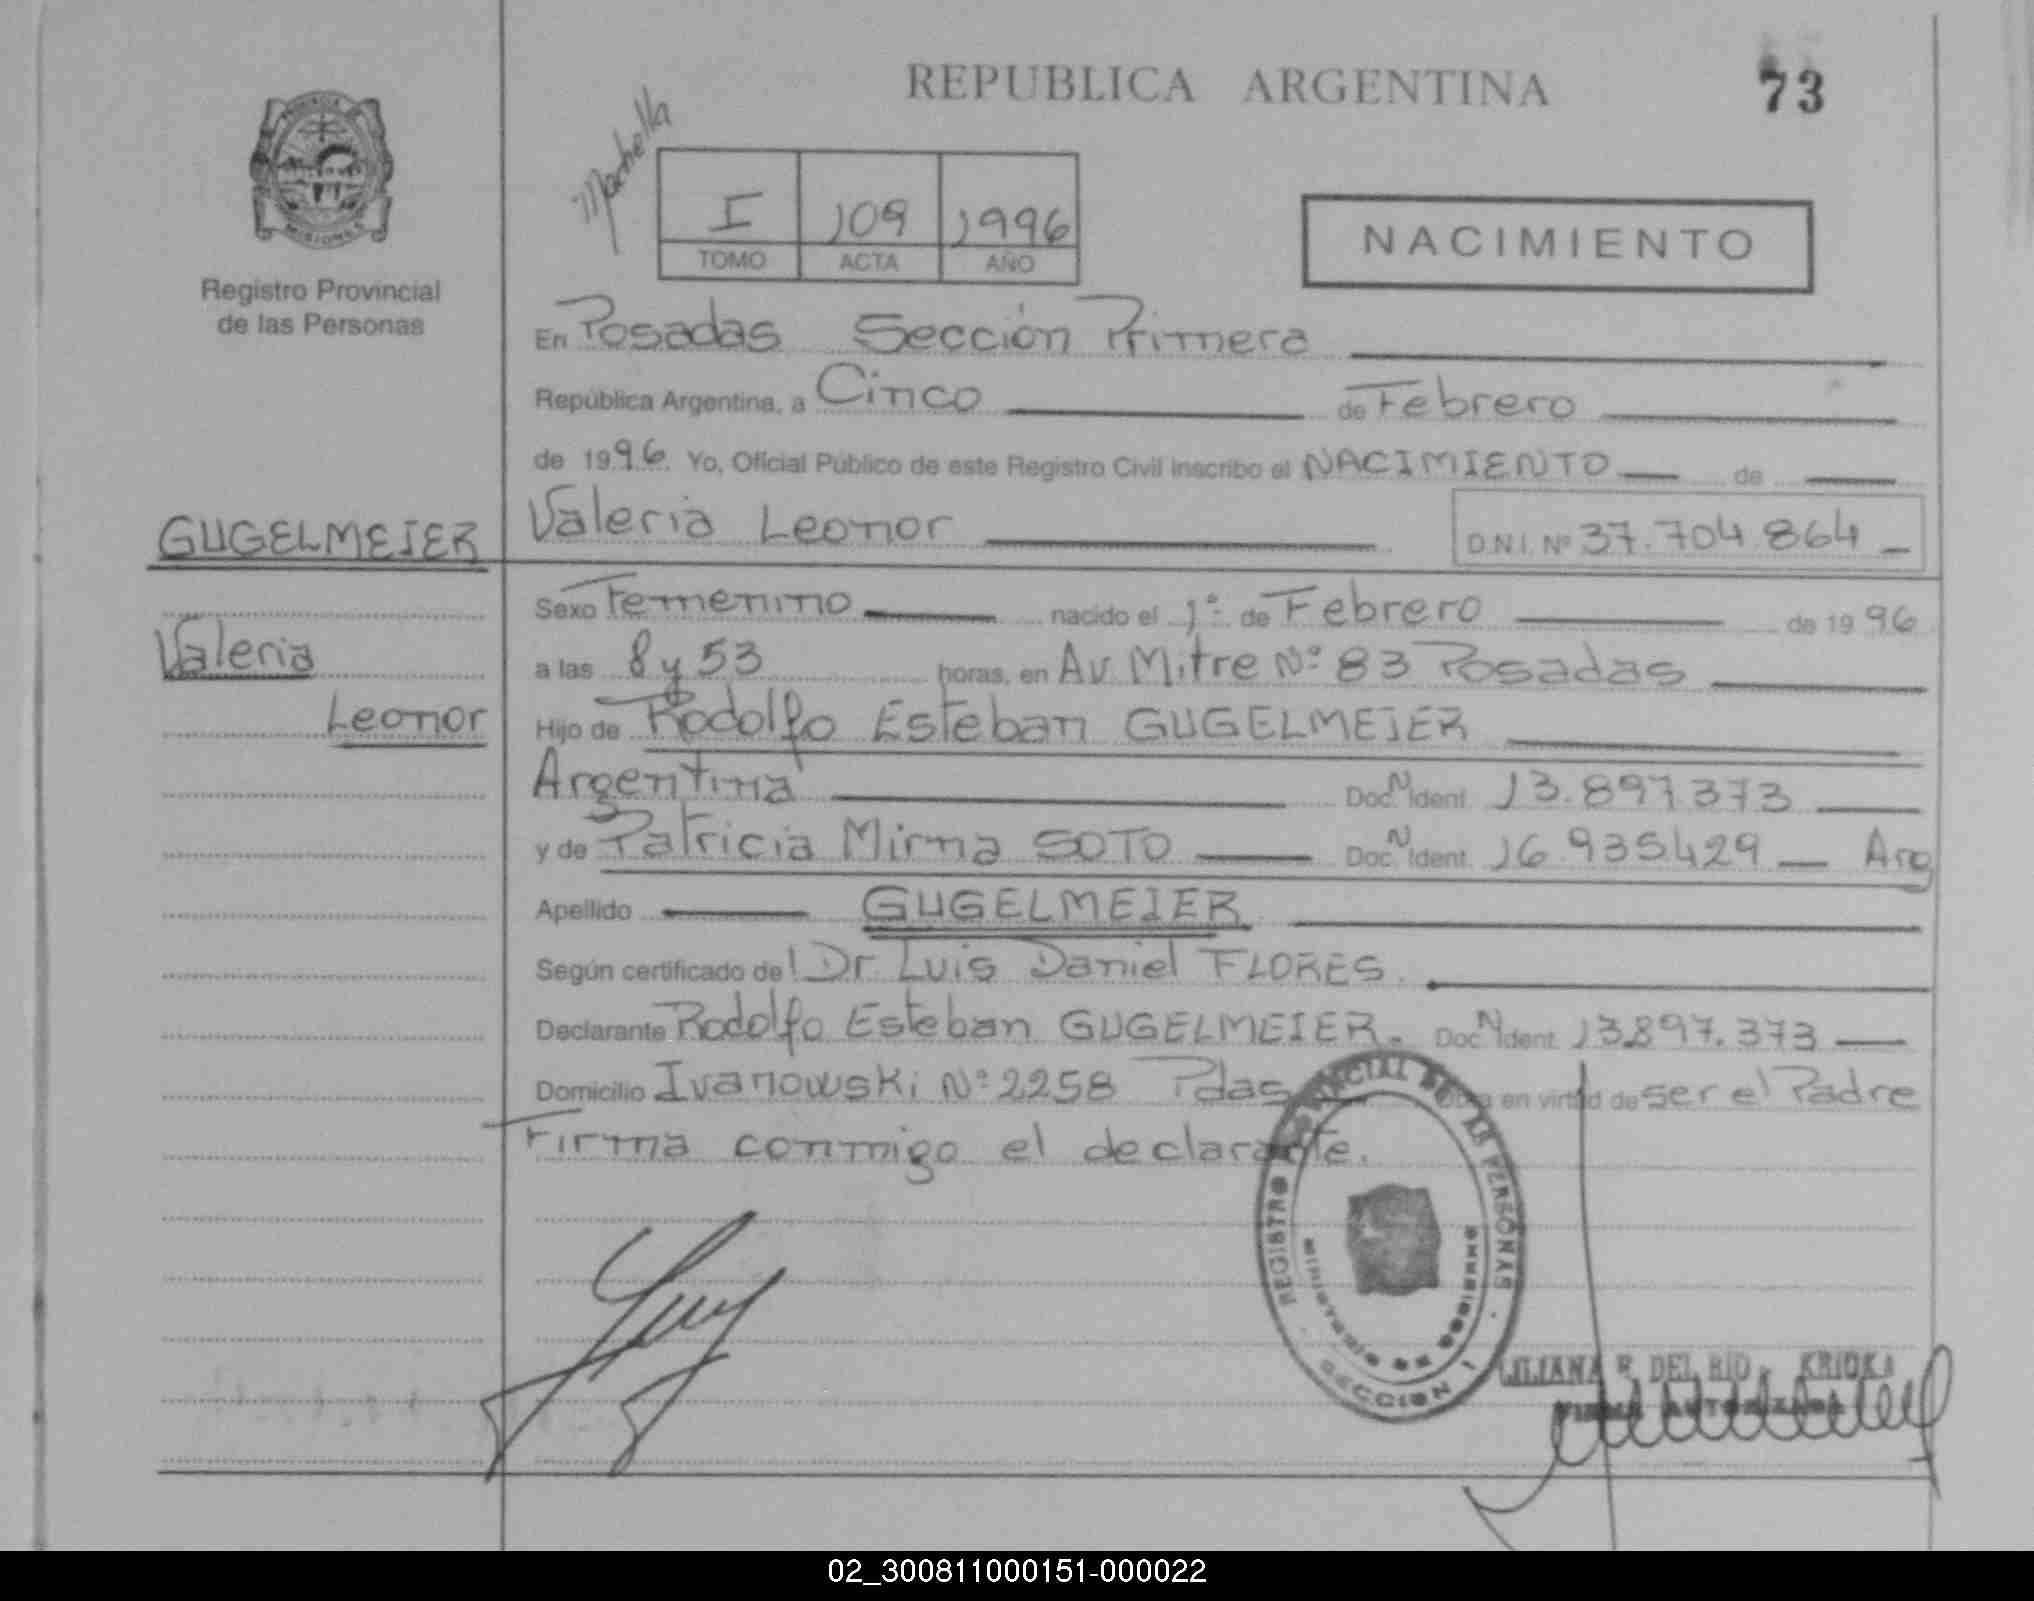 REPUBLICA ARGENTINA
73
PROVINCIA
MISIONES
Registro Provincial
de las Personas
I 109 1996
TOMO ACTA AÑO
NACIMIENTO
En Posadas Sección Primera
República Argentina, a Cinco de Febrero
de 1996. Yo, Oficial Público de este Registro Civil inscribo el NACIMIENTO de
GUGELMEIER
Valeria Leonor D.N.I. Nº 37.704.864
Sexo Femenino nacido el 1º de Febrero de 1996
Valeria
a las 8 y 53 horas, en Av. Mitre Nº 83 Posadas
Leonor
Hijo de Rodolfo Esteban GUGELMEIER
Argentina Doc. N Ident. 13.897.373
y de Patricia Mirna SOTO Doc. N Ident. 16.935.429 Arg
Apellido GUGELMEIER
Según certificado de Dr. Luis Daniel FLORES.
Declarante Rodolfo Esteban GUGELMEIER. Doc. N Ident. 13.897.373
Domicilio Ivanowski Nº 2258 Pdas Obra en virtud de ser el Padre
Firma conmigo el declarante.
REGISTRO PROVINCIAL DE LAS PERSONAS
MINISTERIO DE GOBIERNO
SECCION I
LILIANA R. DEL RIO
FIRMA AUTORIZADA
02_300811000151-000022